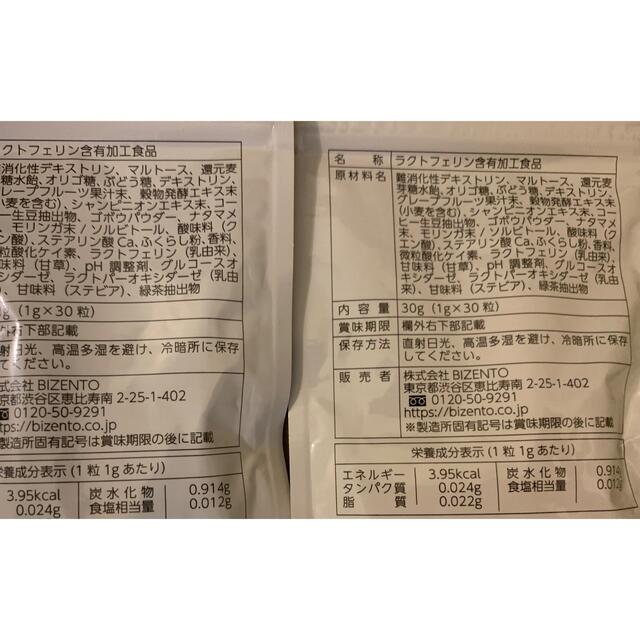 クトフェリン含有加工食品
消化性デキストリン、マルトース、還元麦
糖水飴、オリゴ糖、ぶどう糖、デキストリン、
グレープフルーツ果汁末、穀物発酵エキス末
小麦を含む)、シャンピニオンエキス末、コー
ー生豆抽出物、ゴボウパウダー、ナタマメ
、モリンガ末 / ソルビトール、酸味料 (ク
ン酸)、ステアリン酸 Ca、ふくらし粉、香料、
粒酸化ケイ素、ラクトフェリン (乳由来)、
味料 (甘草)、pH 調整剤、グルコースオ
シダーゼ、ラクトパーオキシダーゼ (乳由
)、甘味料 (ステビア)、緑茶抽出物
g (1g×30 粒)
外右下部記載
射日光、高温多湿を避け、冷暗所に保存
てください。
式会社 BIZENTO
京都渋谷区恵比寿南 2-25-1-402
0120-50-9291
https://bizento.co.jp
製造所固有記号は賞味期限の後に記載
栄養成分表示 (1 粒 1g あたり)
3.95kcal 炭水化物 0.914g
0.024g 食塩相当量 0.012g
名称 ラクトフェリン含有加工食品
原材料名 難消化性デキストリン、マルトース、還元麦
芽糖水飴、オリゴ糖、ぶどう糖、デキストリン、
グレープフルーツ果汁末、穀物発酵エキス末
(小麦を含む)、シャンピニオンエキス末、コー
ヒー生豆抽出物、ゴボウパウダー、ナタマメ
末、モリンガ末 / ソルビトール、酸味料 (ク
エン酸)、ステアリン酸 Ca、ふくらし粉、香料、
微粒酸化ケイ素、ラクトフェリン (乳由来)、
甘味料 (甘草)、pH 調整剤、グルコースオ
キシダーゼ、ラクトパーオキシダーゼ (乳由
来)、甘味料 (ステビア)、緑茶抽出物
内容量 30g (1g×30 粒)
賞味期限 欄外右下部記載
保存方法 直射日光、高温多湿を避け、冷暗所に保存
してください。
販売者 株式会社 BIZENTO
東京都渋谷区恵比寿南 2-25-1-402
0120-50-9291
https://bizento.co.jp
※製造所固有記号は賞味期限の後に記載
栄養成分表示 (1 粒 1g あたり)
エネルギー 3.95kcal 炭水化物 0.914g
タンパク質 0.024g 食塩相当量 0.012g
脂質 0.022g